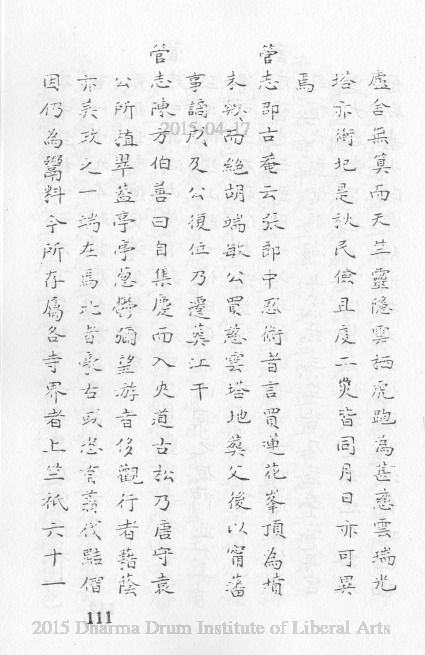 廬舍無算而天竺靈隱雲栖虎跑為甚慈雲瑞光
塔亦衛圮是秋民儉且度二災皆同月日亦可異
焉
管志邵古菴云張郎中忍術昔言買蓮花峯頂為墳
未幾而絕胡端敏公買慈雲塔地葬父後以甯藩
事謫戍及公復位乃遷葬江干
管志陳方伯善曰自集慶而入夾道古松乃唐守袁
公所植翠蓋亭亭蔥鬱彌望游者侈觀行者藉蔭
亦美政之一端在焉比者豪右或恣意翦伐黠僧
因仍為鬻料今所存屬各寺界者上竺衹六十一
111
2015-04-17
2015 Dharma Drum Institute of Liberal Arts